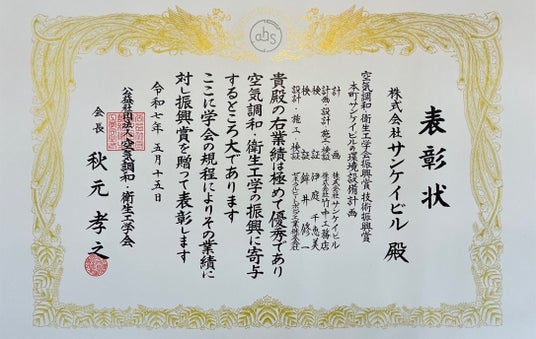 表彰状
株式会社サンケイビル 殿
空気調和・衛生工学会振興賞技術振興賞
本町サンケイビルの環境設備計画
計画 株式会社サンケイビル
計画・設計・施工・検証 株式会社竹中工務店
検証 伊庭千恵美
検証 鉾井修一
設計・施工・検証
貴殿の右業績は極めて優秀であり
空気調和・衛生工学の振興に寄与
するところ大であります
ここに学会の規程によりその業績に
対し振興賞を贈って表彰します
令和七年五月十五日
公益社団法人空気調和・衛生工学会
会長 秋元孝之